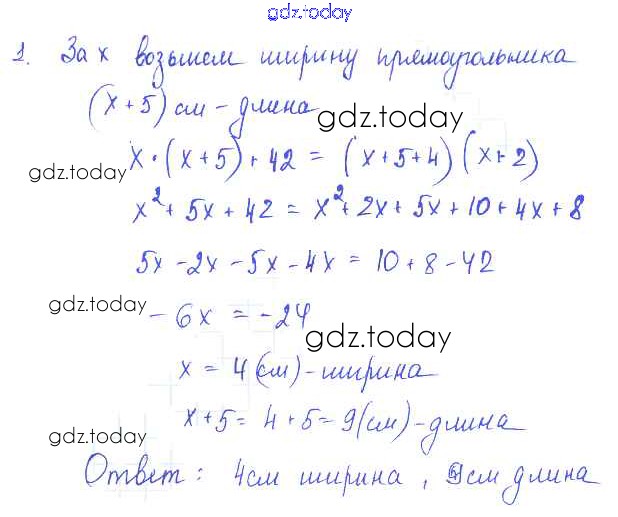 gdz.today
1. За x возьмем ширину прямоугольника
(x+5) см - длина
gdz.today
gdz.today
x·(x+5)+42 = (x+5+4)(x+2)
x²+5x+42 = x²+2x+5x+10+4x+8
5x-2x-5x-4x = 10+8-42
gdz.today
-6x = -24
gdz.today
x = 4(см)-ширина
x+5=4+5=9(см)-длина
gdz.today
Ответ: 4см ширина, 9см длина